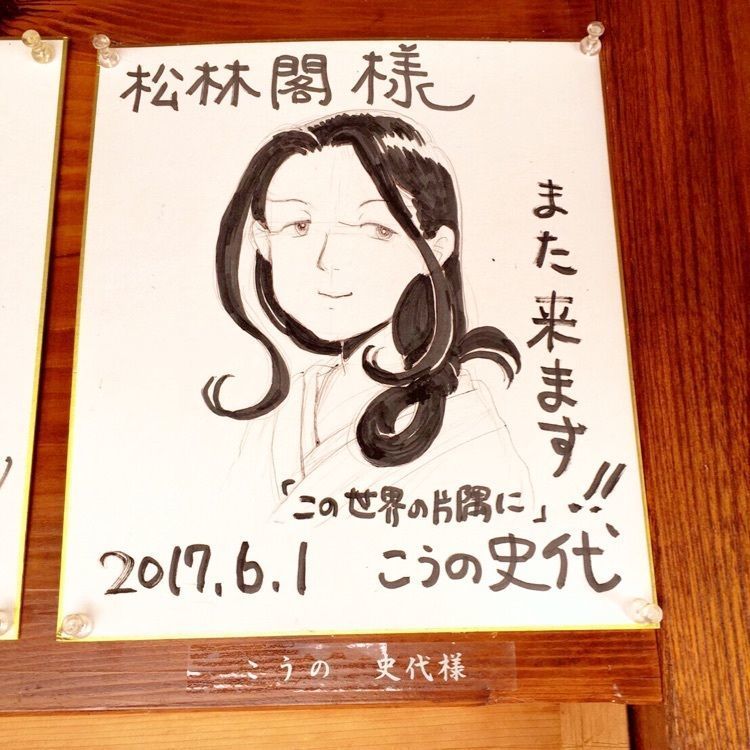 松林閣様
また来ます!!
「この世界の片隅に」
2017.6.1 こうの史代
こうの 史代様